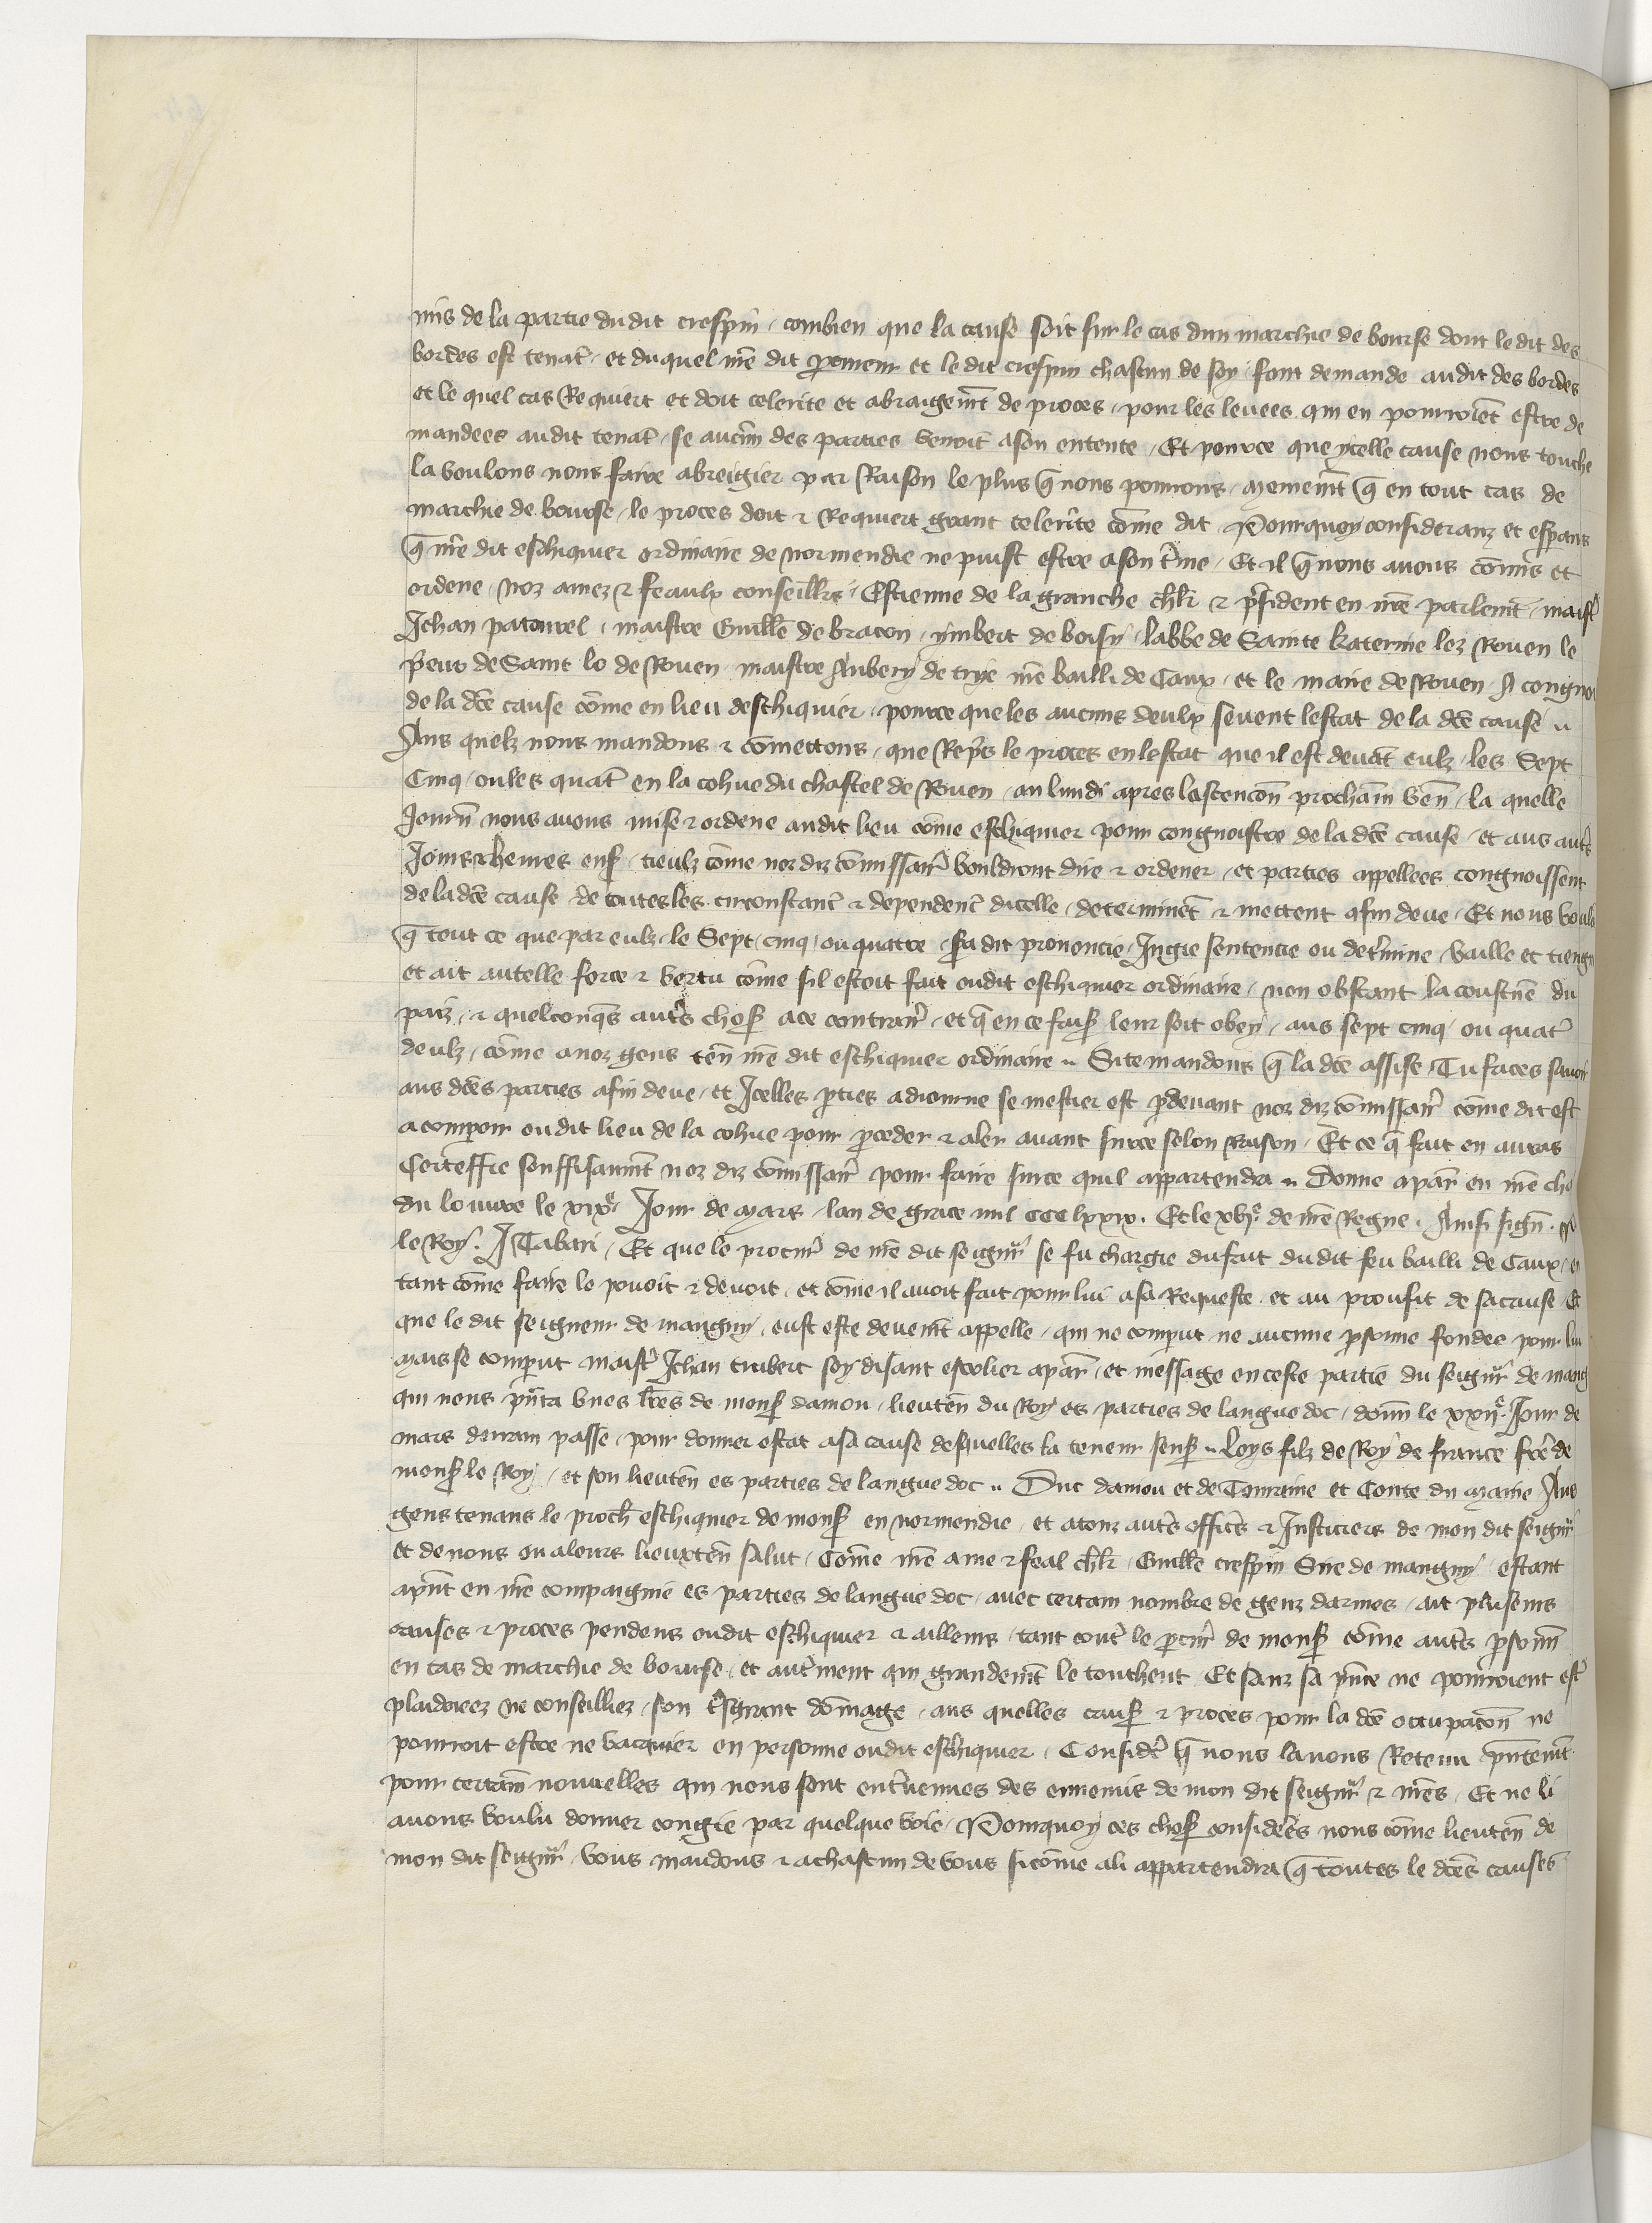 mis de la partie dudit crespin / combien que la cause soit sur le cas dun marchie de bourse dont ledit des
bordes est tenāt / et duquel nr̄e dit procureur et ledit crespin chascun de soy font demande audit des bordes
et le quel cas Requiert et doit celerite et abraigem̄t de proces / pour les leuees qui en pourroiēt estre de
mandees audit tenāt / se aucun des parties venoit a son entente / Et pource que ycelle cause nous touche
la voulons nous faire abreigier par Raison le plus q̄ nous pourrons / mesmem̄t q̄ en tout cas de
marchie de bourse / le proces doit ⁊ Requiert grant celerite cōme dit / Pourquoy considerans et esperans
q̄ nr̄e dit eschiquier ordinaire de normendie ne puist estre a son t̄me / Et il q̄ nous auons cōmis et
ordene / noz amez ⁊ feaulx conseillers / Estienne de la granche chlr̄ ⁊ p̄sident en nr̄e parlem̄t / maist̄
Jehan patourel / maistre Guillē de bracon / ymbert de boisy / labbe de Sainte katerine lez Rouen le
p̄eur de Saint lo de Rouen maistre Aubery de trye nr̄e bailli de Caux / et le maire de Rouen A congno
de la dc̄e cause cōme en lieu deschiquier / pource que les aucuns deulx seuent lestat de la dc̄e cause ..
Aus quelz nous mandons ⁊ cōmettons / que Rep̄s le proces en lestat que il est deuāt eulz / les Sept
Cinq / ou les quat̄ en la cohue du chastel de Rouen / au lundi apres lascencion prochain ven̄ / la quelle
Journ̄ nous auons mise ⁊ ordene audit lieu cōme eschiquier pour congnoistre de la dc̄e cause / et aus aut̄s
Jours ⁊ heures ens̄ / tieulz cōme nozdiz cōmissair̄ vouldront dire ⁊ ordener / et parties appellees congnoissent
de la dc̄e cause de toutes les circonstanc̄ ⁊ dependenc̄ dicelle / determinēt ⁊ mettent a fin deue / Et nous voul
q̄ tout ce que par eulz / le Sept / cinq / ou quatre sera dit prononcie / Jugie sentencie ou det̄mine / vaille et tiengn
et ait autelle force ⁊ vertu cōme sil estoit fait oudit eschiquier ordinaire / non obstant la coustūe du
pais / ⁊ quelconq̄s aut̄s chos̄ a ce contrair̄ / et q̄ en ce fais̄ leur soit obey / aus sept cinq / ou quat̄
deulz / cōme a noz gens ten̄ nr̄e dit eschiquier ordinaire .. Si te mandons q̄ la dc̄e assise / Tu faces sauoir
aus dc̄es parties afin deue / et Jcelles p̄ties adiourne se mestier est p̄deuant noz diz cōmissair̄ cōme dit est
a comparoir oudit lieu de la cohue pour p̄ceder ⁊ aler auant surce selon Raison / Et ce q̄ fait en auras
Certeffie souffisanm̄t noz diz cōmissair̄ pour faire surce quil appartendra .. Donne a par̄ en nr̄e ch
du louure le xixe Jour de mars / lan de grace mil ccc lxxix. Et le xvje de nr̄e Regne . Ainsi sign̄ .
le Roy . J Tabari / Et que le procur̄ de nr̄e dit seign̄r se fu chargie du fait dudit feu bailli de Caux / en
tant cōme faire le pouoit ⁊ deuoit / et cōme il auoit fait pour lui a sa Requeste / et au proufit de sa cause Et
que le dit seigneur de mauguy / eust este deuem̄t appelle / qui ne comparut ne aucune p̄sonne fondee pour lui
mais se comparut maist̄ Jehan trubert soy disant escolier a par̄ / et message en ceste partie du seign̄r de maug
qui nous p̄nta vnes lr̄es de mons̄ daniou / lieuten̄ du Roy es parties de langue doc / donn̄ le xxije Jour de
mars derrain passe / pour donner estat a sa cause desquelles la teneur sens̄ .. Loys filz de Roy de france fr̄e de
mons̄ le Roy / et son lieuten̄ es parties de langue doc .. Duc daniou et de Touraine et Conte du maine Aus
gens tenans le proch̄ eschiquier de mons̄ en normendie / et a touz aut̄s offic̄s ⁊ Justiciers de mon dit seign̄r
et de nous ou a leurs lieuxten̄ salut / Cōme nr̄e ame ⁊ feal chlr̄ / Guillē crespin Sire de mauguy / estant
a p̄nt en nr̄e compaignie es parties de langue doc / auec certain nombre de genz darmes / ait pluseurs
causes ⁊ proces pendens oudit eschiquier ⁊ ailleurs / tant cont̄ le p̄cur̄ de mons̄ cōme aut̄s p̄sonn̄
en cas de marchie de bourse / et aut̄ment qui grandem̄t le touchent / Et sanz sa p̄nce ne pourroient est̄
plaidoiees ne conseilliez / son t̄sgrant dōmage / aus quelles caus̄ ⁊ proces pour la dc̄e occupacōn ne
pourroit estre ne vacquier en personne oudit eschiquier / Consider̄ q̄ nous lauons Retenu p̄ntem̄t
pour certain̄ nouuelles qui nous sont ent̄uenues des ennemis de mon dit seign̄r ⁊ nr̄es / Et ne li
auons voulu donner congie par quelque voie / Pourquoy ces chos̄ considerēs nous cōme lieuten̄ de
mon dit seign̄r / vous mandons ⁊ a chascun de vous si cōme a li appartendra q̄ toutes le dc̄es causes